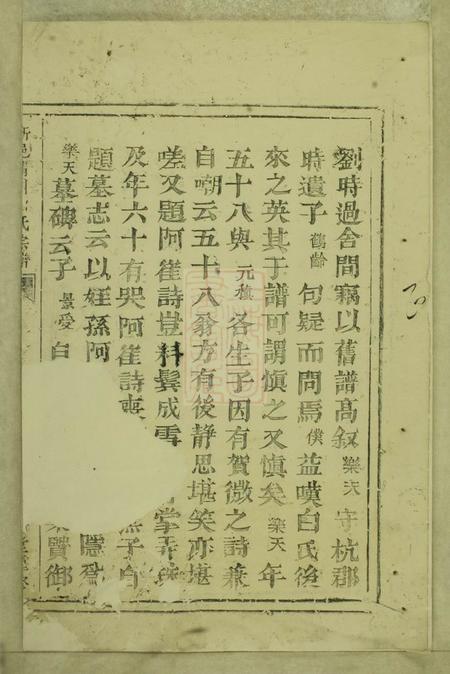 劉時過舍間竊以舊譜高叙樂天守杭郡
時遺子鶴齡句疑而問焉僕益嘆白氏後
來之英其于譜可謂慎之又慎矣樂天年
五十八與元稹各生子因有賀微之詩兼
自嘲云五十八翁方有後靜思堪笑亦堪
嗟又題阿崔詩豈料鬢成雪掌弄
及年六十有哭阿崔詩喪無子白
題墓志云以姪孫阿隱爲
樂天墓碑云子景受白賢御
氏宗譜